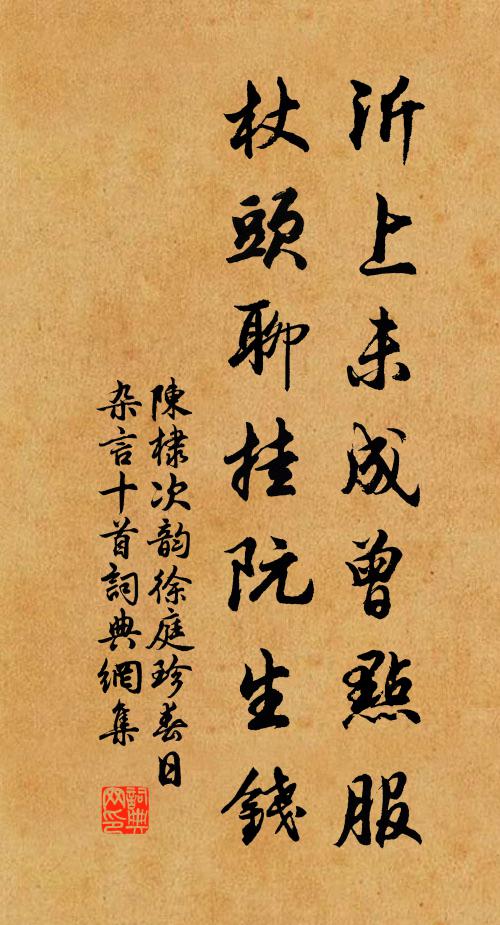 沂上未成曾點服
杖頭聊挂阮生錢
陳棣次韵徐庭珍春日
杂言十首詞典網集
詞典
网印